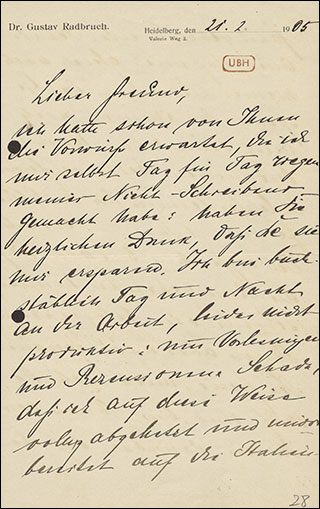 Dr. Gustav Radbruch.
Heidelberg, den 21. 2. 1905
UBH
Lieber Freund,
ich hatte schon von Ihnen
die Vorwürfe erwartet, die ich
mir selbst Tag für Tag wegen
meines Nicht-Schreibens
gemacht habe: haben Sie
herzlichen Dank, daß Sie sie
mir ersparen. Ich bin buch-
stäblich Tag und Nacht
an der Arbeit, leider nicht
produktiv: nur Vorlesungen
und Rezensionen. Schade,
daß ich auf diese Weise
völlig abgehetzt und
bereitet auf die Italien-
28